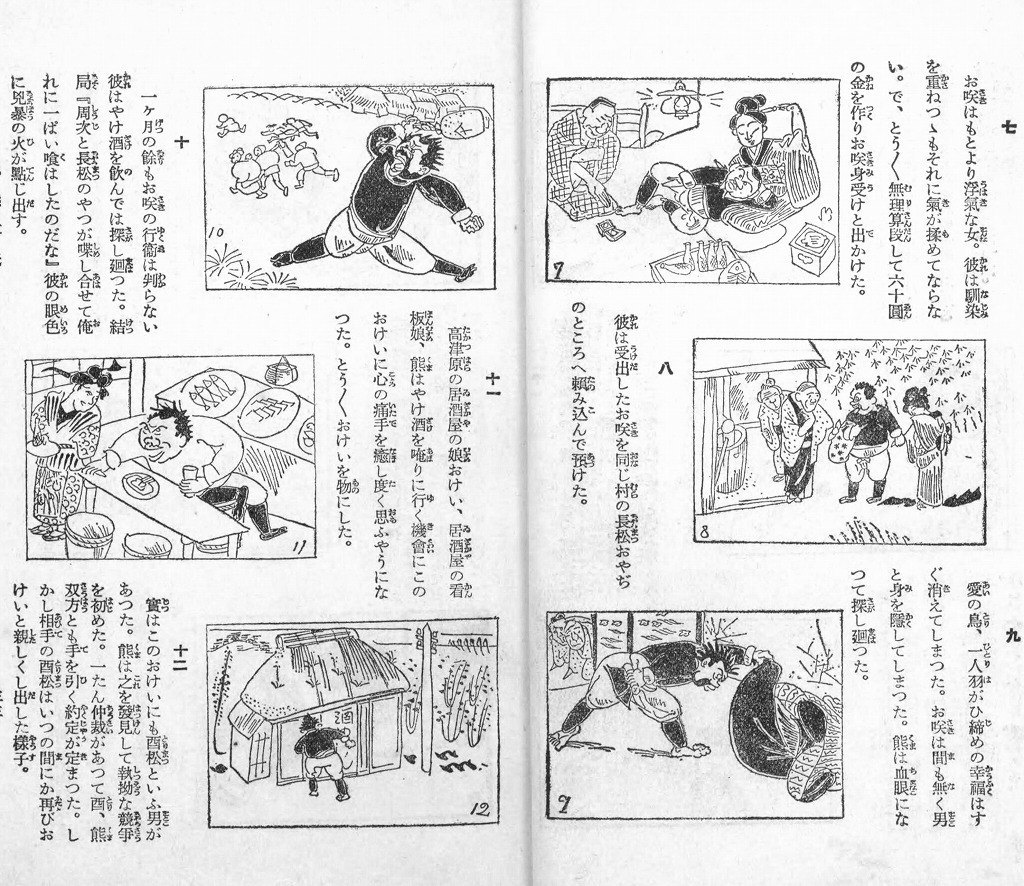 七
お咲はもとより浮氣な女。彼は馴染
を重ねつゝもそれに氣が揉めてならな
い。で、とう〳〵無理算段して六十圓
の金を作りお咲身受けと出かけた。
7
八
彼は受出したお咲を同じ村の長松おやぢ
のところへ頼み込んで預けた。
8
九
愛の鳥、一人羽がひ締めの幸福はす
ぐ消えてしまつた。お咲は間も無く男
と身を隱してしまつた。熊は血眼にな
つて探し廻つた。
9
十
一ヶ月の餘もお咲の行衞は判らない
彼はやけ酒を飮んでは探し廻つた。結
局『周次と長松のやつが喋し合せて俺
れに一ぱい喰はしたのだな』彼の眼色
に兇暴の火が點じ出す。
10
十一
高津原の居酒屋の娘おけい、居酒屋の看
板娘、熊はやけ酒を呷りに行く機會にこの
おけいに心の痛手を癒し度く思ふやうにな
つた。とう〳〵おけいを物にした。
11
十二
實はこのおけいにも酉松といふ男が
あつた。熊は之を發見して執拗な競爭
を初めた。一たん仲裁があつて酉、熊
双方とも手を引く約定が定まつた。し
かし相手の酉松はいつの間にか再びお
けいと親しくし出した樣子。
酒
12